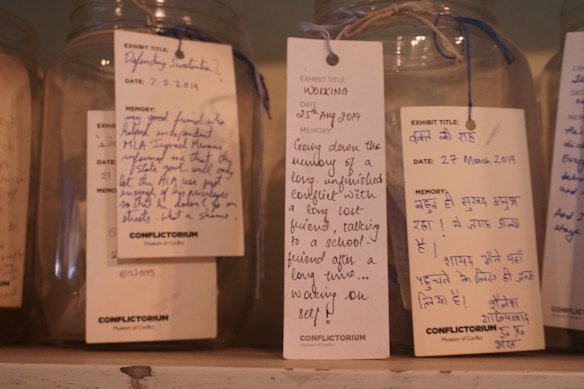 EXHIBIT TITLE:
Defending
DATE: 7.5.2019
MEMORY:
my good friend who
helped independent
MLA Jignesh Mevani
informed me that the
state govt. will only
let the MLA use just
enough of his privileges
so that he doesn't go on
streets. What a shame.
CONFLICTORIUM
Museum of Conflict
CONFLICTORIUM
Museum of Conflict
EXHIBIT TITLE:
WORKING
DATE:
25th Aug 2019
MEMORY:
Going down the
memory of a
long-unfinished
conflict with
a long lost
friend, talking
to a school-
friend after a
long time...
working on
self!
CONFLICTORIUM
Museum of Conflict
EXHIBIT TITLE:
वक्त की राह
DATE: 27 March 2019
MEMORY:
बहुत ही सुखद अनुभव
रहा! ये जगह अच्छी
है!
शायद मैंने यहाँ
पहुंचने के लिए ही जन्म
लिया है!
शैलेश
गाज़ियाबाद
उ० प्र०
भारत
CONFLICTORIUM
Museum of Conflict